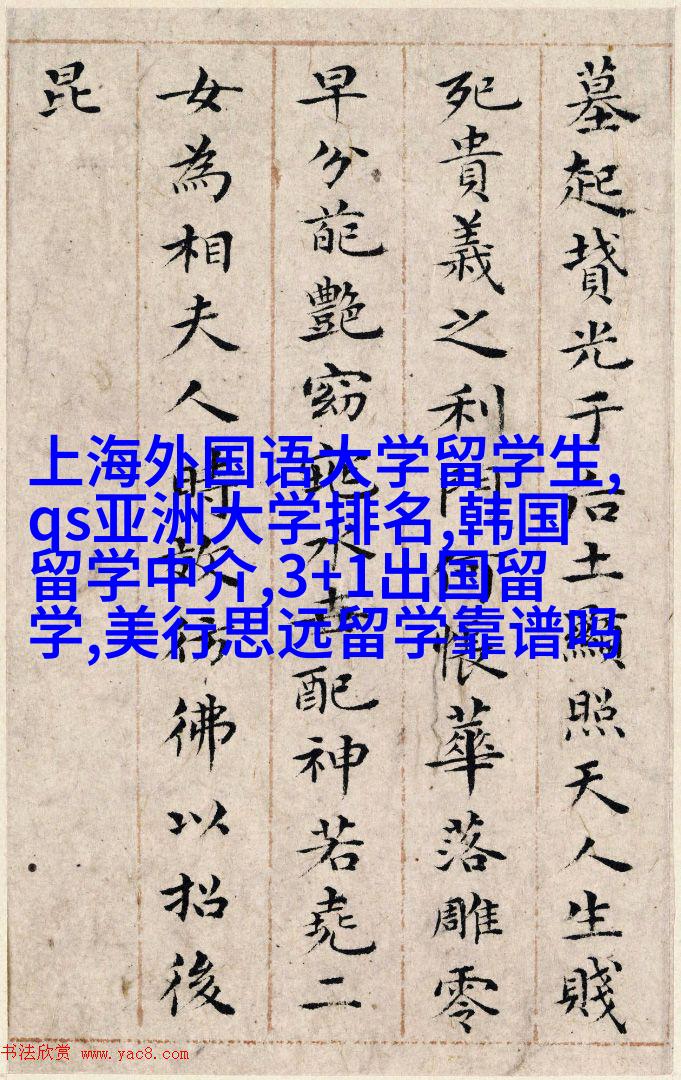 墓起墳光于后土顯照天人生賤
死貴義之利門何悵華落雕零
早分葩艷窈窕永世配神若堯二
女為相夫人時效彷彿以招後
昆
上海外国语大学留学生,
qs亚洲大学排名,韩国
留学中介,3+1出国留
学,美行思远留学靠谱吗
书法欣赏 www.yac8.com